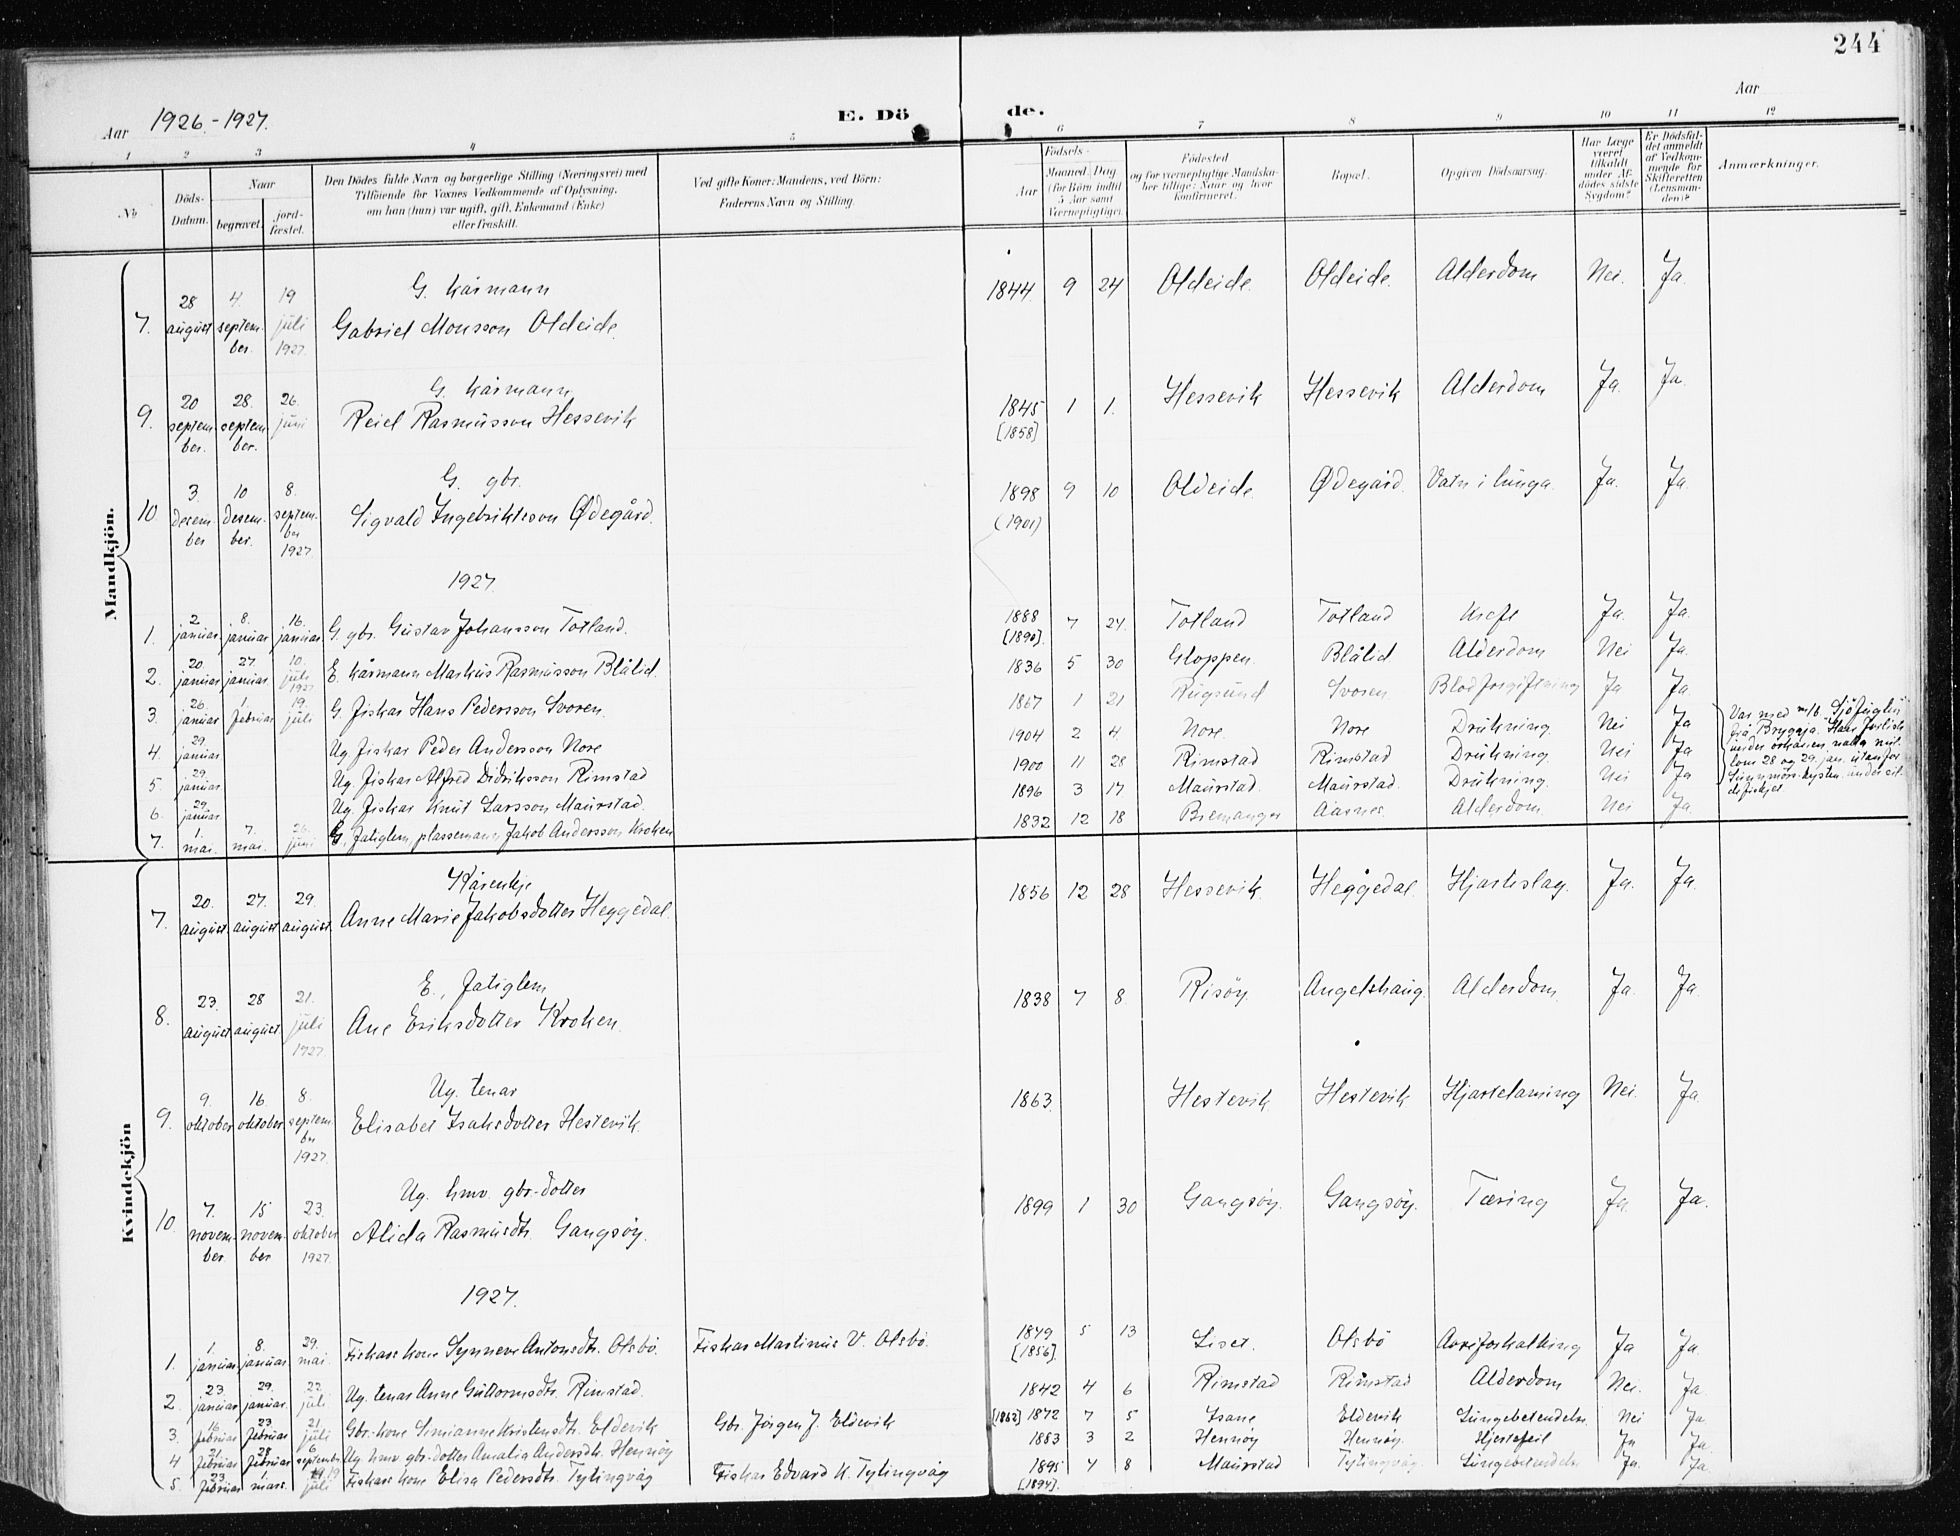 244
Aar 1926.-1927. E. Dö de. Aar
1 2 3 4 5 6 7 8 9 10 11 12
No
Döds-Datum.
Naar
begravet.
jord-fæstet.
Den Dödes fulde Navn og borgerlige Stilling (Næringsvei) med
Tilföiende for Voxnes Vedkommende af Oplysning,
om han (hun) var ugift, gift, Enkemand (Enke)
eller fraskilt.
Ved gifte Koner: Mandens, ved Börn:
Faderens Navn og Stilling.
Födsels-
Aar
Maaned. Dag
(for Börn indtil
5 Aar samt
Værnepligtige).
Födested
og for værnepligtige Mandska-
ber tillige: Naar og hvor
konfirmeret.
Bopæl.
Opgiven Dödsaarsag.
Har Læge
været
tilkaldt
under Af-
dödes sidste
Sygdom?
Er Dödsfal-
det anmeldt
af Vedkom-
mende for
Skifteretten
(Lensman-
den)?
Anmærkninger.
Mandkjön.
7. 28 august 4. september. 19 juli 1927. G. kårmann Gabriel Monsson Oldeide. 1844 9 24 Oldeide. Oldeide. Alderdom Nei. Ja.
9. 20 september. 28. september. 26. juni G. kårmann Reiel Rasmusson Hessevik 1845 [1858] 1 1. Hessevik Hessevik Alderdom Ja. Ja.
10. 3. desember 10 desember. 8. september 1927. G. gbr. Sigvald Ingebriktsson Ødegård. 1898 (1901) 9 10 Oldeide. Ødegård. Vatn i lunga. Ja. Ja.
1927.
1. 2. januar. 8. januar. 16. januar. G. gbr. Gustav Johansson Totland. 1888 [1890]. 7 24. Totland Totland Kreft Ja. Ja.
2. 20. januar. 27. januar. 10. juli 1927 E. kårmann Markus Rasmusson Blålid. 1836 5 30 Gloppen. Blålid Alderdom Nei Ja.
3. 26. januar 1. februar 19. juli G. fiskar Hans Pedersson Svoren. 1867 1 21 Rugsund Svoren. Blodforgiftning Ja Ja.
4. 29. januar Ug. fiskar Peder Andersson Nore 1904 2 4 Nore. Nore Drukning. Nei Ja
5. 29. januar. Ug. fiskar Alfred Didriksson Rimstad 1900 11 28 Rimstad Rimstad Drukning. Nei Ja
6. 29. januar. Ug. fiskar Knut Larsson Maurstad. 1896 3 17 Maurstad. Maurstad. Drukning. Nei Ja
Var med m/b. Sjöfuglen
frå Bryggja. Som forliste
under orkanen natta mil.
lom 28 og 29. jan. utanfor
Sunnmörs-kysten under sil-
defisket
7. 1. mai. 7. mai. 26. juni G. fatiglem, plassemann Jakob Andersson Kroken 1832 12 18 Bremanger Aarnes Alderdom. Nei Ja.
Kvindekjön
7. 20. august. 27. august 29. august. Kårenkje Anne Marie Jakobsdotter Heggedal. 1856 12 28 Hessevik. Heggedal. Hjarteslag. Ja. Ja.
8. 23. august 28 august. 21. juli 1927. E., fatiglem Ane Eriksdotter Kroken. 1838 7 8 Risöy. Angelshaug. Alderdom. Ja. Ja.
9. 9. oktober 16. oktober 8. september 1927. Ug. tenar Elisabet Isaksdotter Hestevik. 1863. Hestevik Hestevik Hjartelaming Nei. Ja.
10. 7. november. 15 november 23. oktober 1927. Ug. hmv. gbr-dotter Alida Rasmusdtr. Gangsöy. 1899 1 30 Gangsöy. Gangsöy. Tæring Ja. Ja.
1927.
1. 1. januar 8. januar. 29. mai. Fiskarkone Synneve Antonsdtr. Olsbö. Fiskar Martinus V. Olsbö. 1849 [1856]. 5 13 Liset. Olsbö Aareforkalkning Ja Ja.
2. 23. januar 29. januar. 22. juli Ug. tenar Anne Guttormsdtr. Rimstad. 1842 4 6 Rimstad Rimstad Alderdom Nei. Ja.
3. 16. februar 23. februar 21. juli Gbr.-kone Simianne Kristensdtr. Eldevik Gbr. Jörgen J. Eldevik [1862] 1872 7 5 Isane Eldevik Lungebetendelse Nei Ja.
4 21. februar 28. februar 6. september Ug hmv. gbr-dotter Amalia Andersdtr. Hennöy 1883 3 2 Hennöy Hennöy. Hjertefeil Ja Ja.
5. 23. februar 1. mars. 19 juli Fiskarkone Elisa Pedersdtr. Tytingvåg Fiskar Edvard K. Tytingvåg 1895 [1894]. 4 8 Maurstad Tytingvåg Lungebetendelse Ja. Ja.